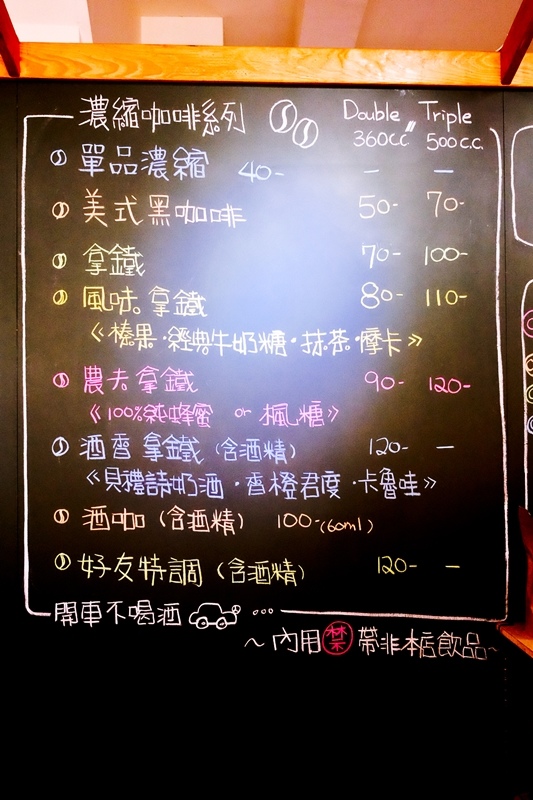 濃縮咖啡系列 Double Triple
360c.c. 500c.c.
單品濃縮 40- — —
美式黑咖啡 50- 70-
拿鐵 70- 100-
風味拿鐵 80- 110-
《榛果·經典牛奶糖·抹茶·摩卡》
農夫拿鐵 90- 120-
《100%純蜂蜜 or 楓糖》
酒香拿鐵(含酒精) 120- —
《貝禮詩奶酒·香橙君度·卡魯哇》
酒咖(含酒精) 100-(60ml)
好友特調(含酒精) 120- —
開車不喝酒 ...
~內用禁帶非本店飲品~